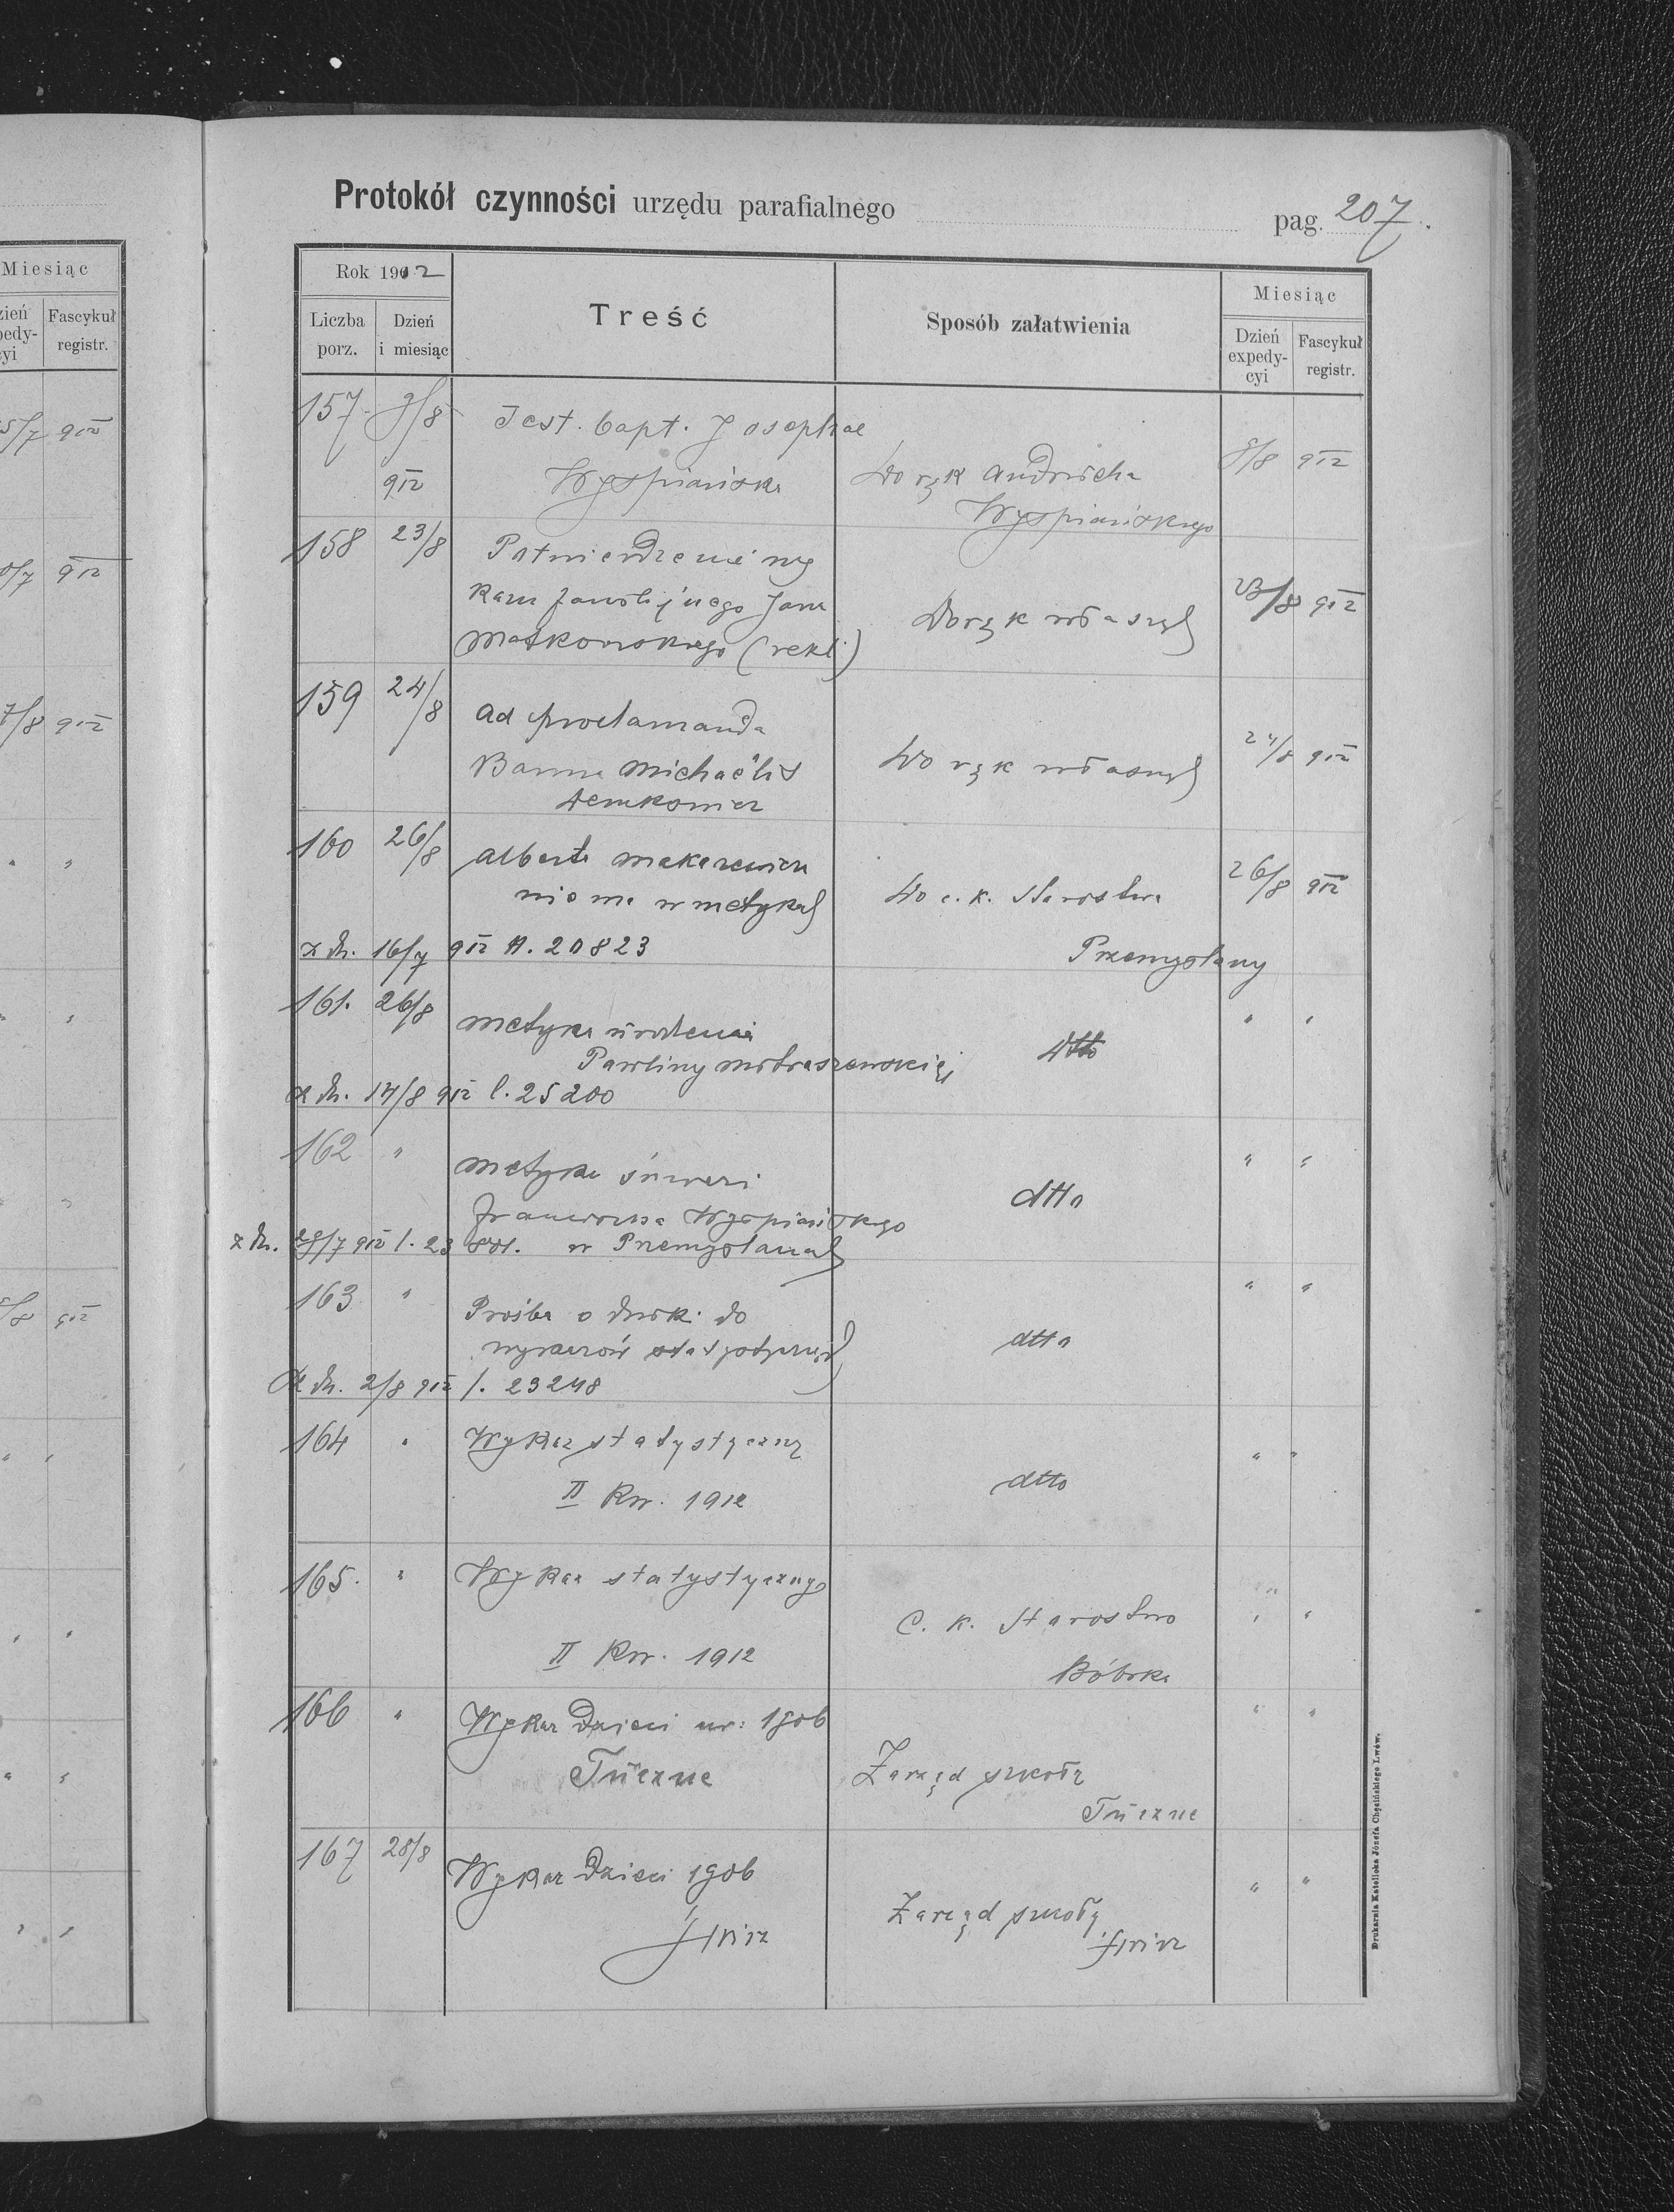 Miesiąc
Fascykuł
registr.
5/7 912
912
7/8 912
912
Protokół czynności urzędu parafialnego pag. 207.
Rok 1912
Liczba porz.
Dzień i miesiąc
Treść
Sposób załatwienia
Miesiąc
Dzień expedy-cyi
Fascykuł registr.
157 8/8 Test. bapt. Josephae
912 Wyspiańska Do rąk Andrucha 8/8 912
Wyspiańskiego
158 23/8 Potwierdzenie wy
kazu familijnego Jana Do rąk własnych 23/8 912
Matkowskiego (rekl.)
159 24/8 Ad proclamanda
Banna Michaëlis Do rąk własnych 24/8 912
Demkowicz
160 26/8 Alberta Makarewicza
niema w metykach Do c. k. Starostwa 26/8 912
z dn. 16/7 912 l. 20823 Przemyślany
161. 26/8 Metyka urodzenia " "
Pawliny dtto
z dn. 14/8 912 l. 25200
162 " Metyka śmierci " "
Franciszka Wyspiańskiego dtto
z dn. 29/7 912 l. 23 w Przemyślanach
163 " Prośba o druki do " "
wykazów dtto
z dn. 2/8 912 l. 23248
164 " Wykaz statystyczny " "
II Kw. 1912 dtto
165. " Wykaz statystycznego
C. k. Starostwo " "
II Kw. 1912 Bóbrka
166 " Wykaz Dzieci ur: 1906 " "
Tuczne Zarząd szkoły
Tuczne
167 28/8 Wykaz Dzieci 1906 " "
Świrz Zarząd szkoły
Świrz
Drukarnia Katolicka Józefa Chęcińskiego Lwów.